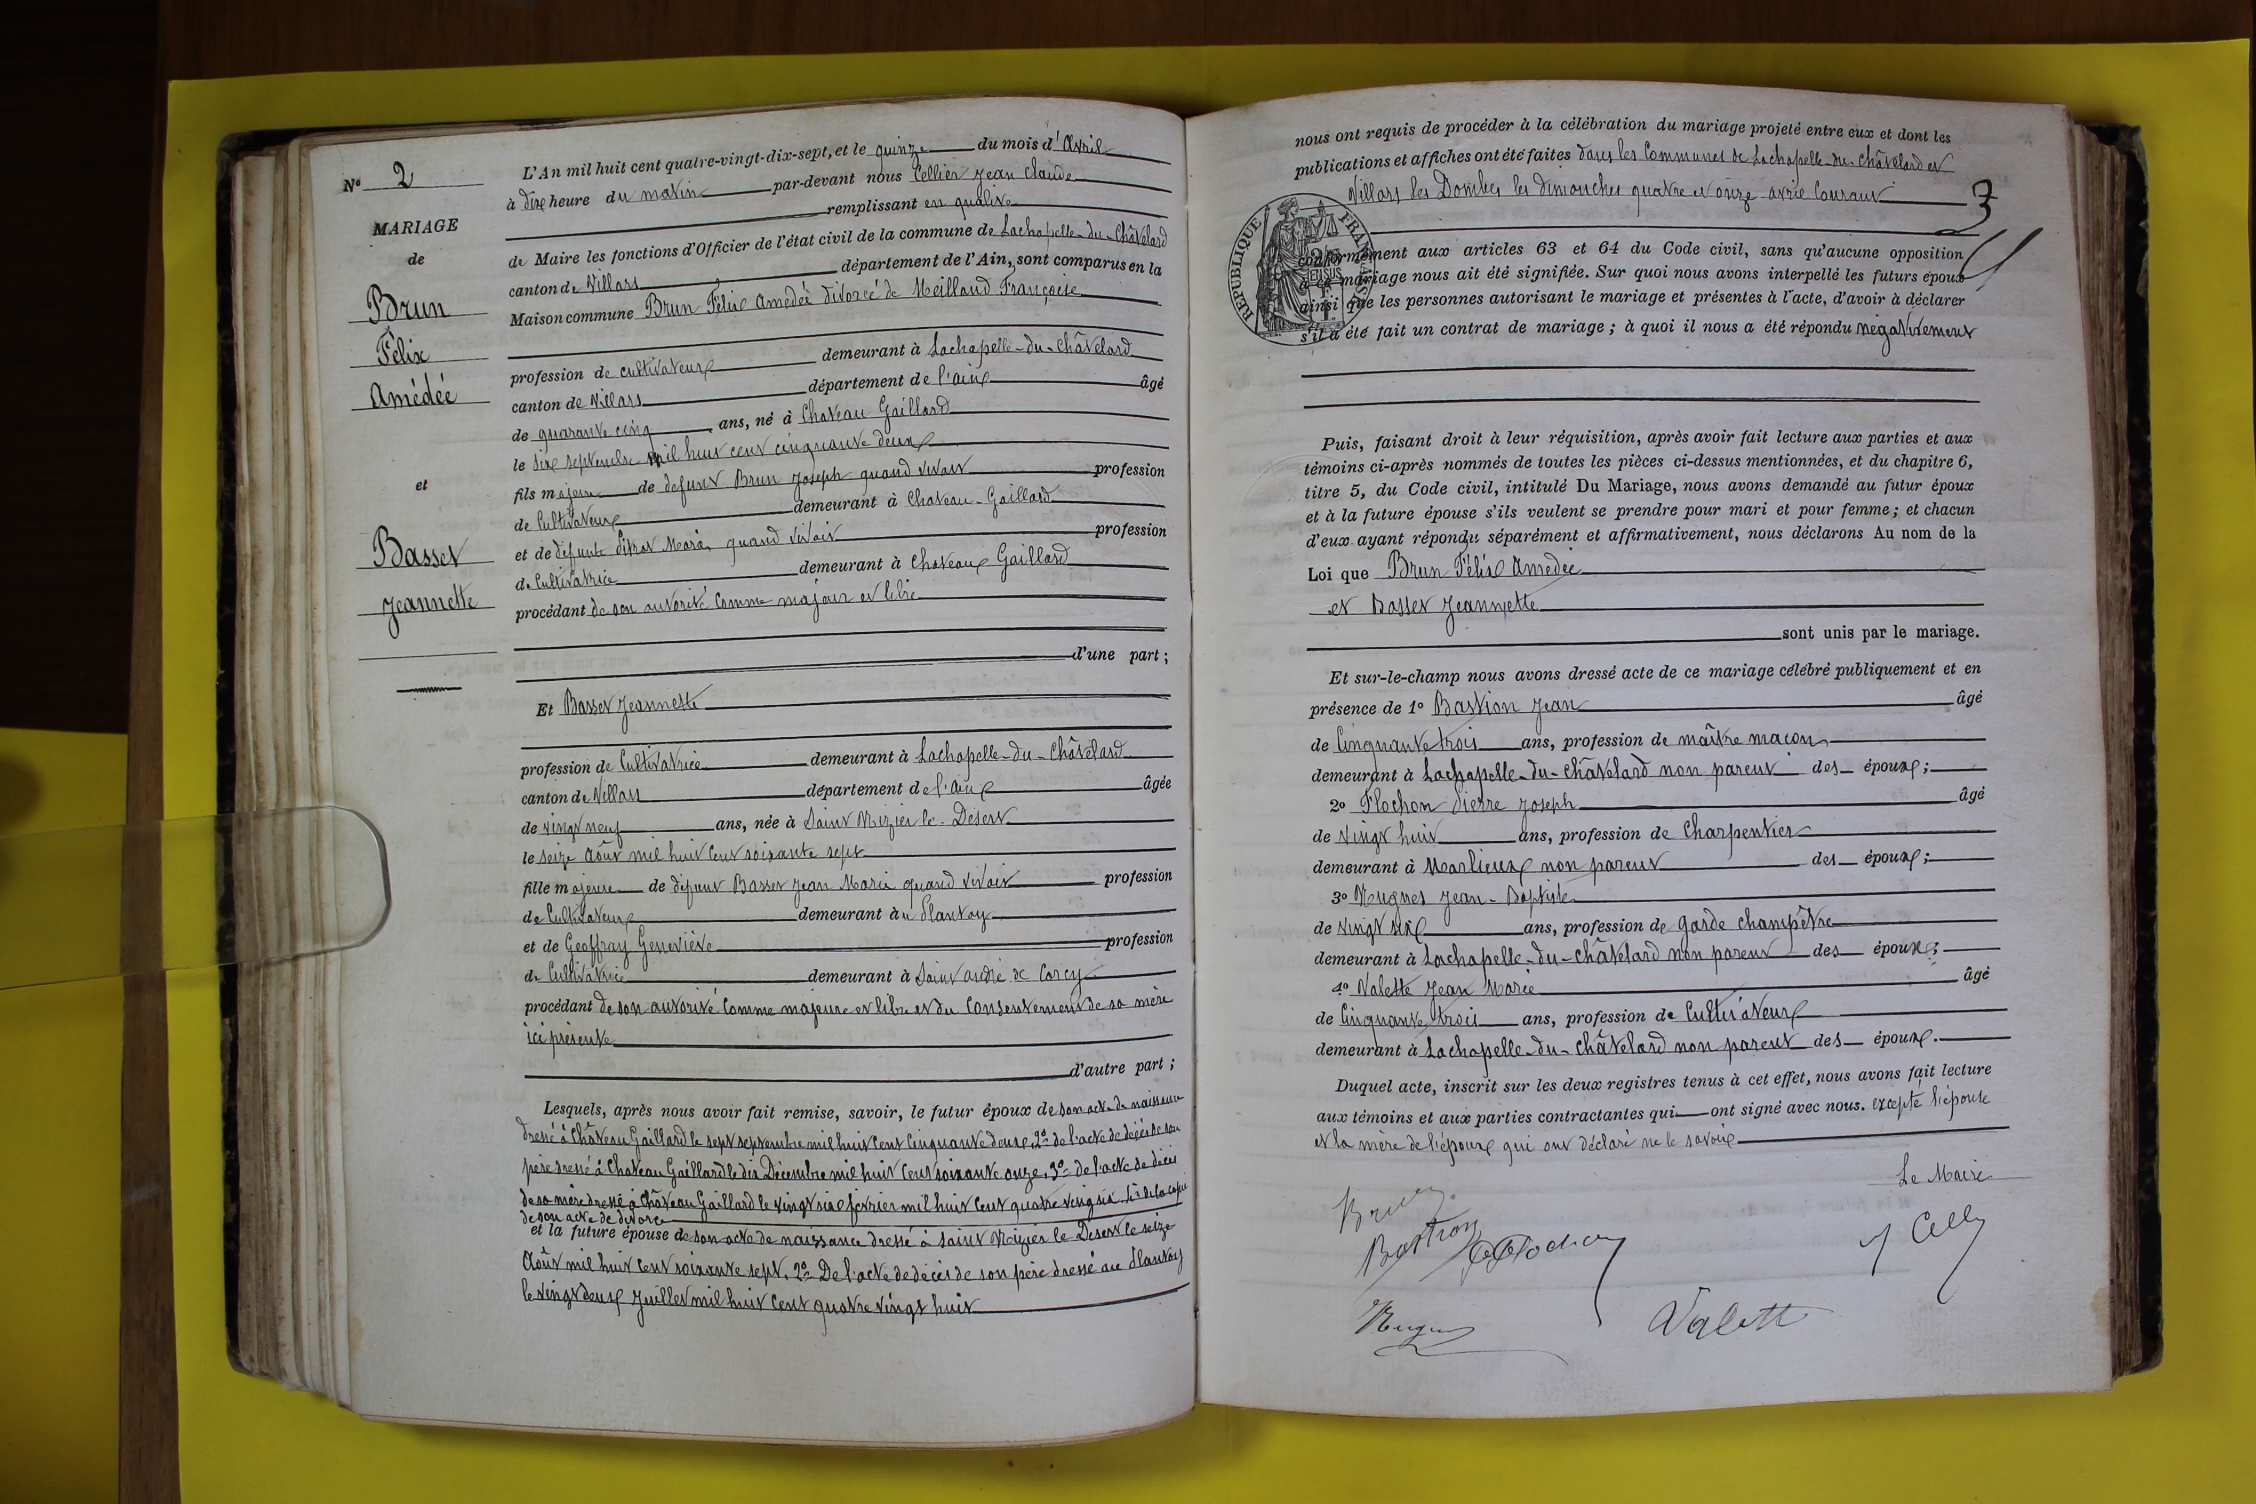 Nº 2
MARIAGE
de
Brun
Félix
Amédée
et
Basset
Jeannette
L'An mil huit cent quatre-vingt-dix-sept, et le quinze du mois d'Avril
à dix heure du matin par-devant nous Cellier Jean Claude
remplissant en qualité
de Maire les fonctions d'Officier de l'état civil de la commune de Lachapelle-du-Châtelard
canton de Villars département de l'Ain, sont comparus en la
Maison commune Brun Félix Amédée divorcé de Meilland Françoise
profession de cultivateur demeurant à Lachapelle-du-Châtelard
canton de Villars département de l'ain âgé
de quarante cinq ans, né à Chateau Gaillard
le six septembre mil huit cent cinquante deux
fils majeur de defunt Brun Joseph quand vivait profession
de Cultivateur demeurant à Chateau-Gaillard
et de défunte Marie quand vivait profession
de Cultivatrice demeurant à Chateau Gaillard
procédant de son autorité comme majeur et libre
d'une part ;
Et Basset Jeannette
profession de Cultivatrice demeurant à Lachapelle-du-Châtelard
canton de Villars département de l'ain âgée
de vingt neuf ans, née à Saint Nizier le Désert
le seize Août mil huit cent soixante sept
fille majeure de défunt Basset Jean Marie quand vivait profession
de Cultivateur demeurant àu Plantay
et de Geoffray Geneviève profession
de Cultivatrice demeurant à Saint André de Corcy
procédant de son autorité comme majeure et libre et du consentement de sa mère
ici présente
d'autre part ;
Lesquels, après nous avoir fait remise, savoir, le futur époux de son acte de naissance
dressé à Château Gaillard le sept septembre mil huit cent cinquante deux, 2º de l'acte de décès de son
père dressé à Chateau Gaillard le dix Décembre mil huit cent soixante onze, 3º de l'acte de décès
de sa mère dressé à Château Gaillard le vingt six février mil huit cent quatre vingt six 4º de la copie
de son acte de divorce
et la future épouse de son acte de naissance dressé à Saint Nizier le Désert le seize
Août mil huit cent soixante sept, 2º De l'acte de décès de son père dressé au Plantay
le vingt deux Juillet mil huit cent quatre vingt huit
nous ont requis de procéder à la célébration du mariage projeté entre eux et dont les
publications et affiches ont été faites dans les Communes de Lachapelle-du-Châtelard et
Villars les Dombes les dimanches quatre et onze avril courant
3
RÉPUBLIQUE FRANÇAISE
conformément aux articles 63 et 64 du Code civil, sans qu'aucune opposition
à ce mariage nous ait été signifiée. Sur quoi nous avons interpellé les futurs époux
ainsi que les personnes autorisant le mariage et présentes à l'acte, d'avoir à déclarer
s'il a été fait un contrat de mariage ; à quoi il nous a été répondu négativement
Puis, faisant droit à leur réquisition, après avoir fait lecture aux parties et aux
témoins ci-après nommés de toutes les pièces ci-dessus mentionnées, et du chapitre 6,
titre 5, du Code civil, intitulé Du Mariage, nous avons demandé au futur époux
et à la future épouse s'ils veulent se prendre pour mari et pour femme ; et chacun
d'eux ayant répondu séparément et affirmativement, nous déclarons Au nom de la
Loi que Brun Félix Amédée
et Basset Jeannette
sont unis par le mariage.
Et sur-le-champ nous avons dressé acte de ce mariage célébré publiquement et en
présence de 1º Bastion Jean âgé
de Cinquante trois ans, profession de maître maçon
demeurant à Lachapelle-du-Châtelard non parent des époux ;
2º Flochon Pierre Joseph âgé
de vingt huit ans, profession de Charpentier
demeurant à Marlieux non parent des époux ;
3º Nugues Jean-Baptiste
de vingt six ans, profession de garde champêtre
demeurant à Lachapelle-du-Châtelard non parent des époux ;
4º Valette Jean Marie âgé
de Cinquante trois ans, profession de Cultivateur
demeurant à Lachapelle-du-Châtelard non parent des époux.
Duquel acte, inscrit sur les deux registres tenus à cet effet, nous avons fait lecture
aux témoins et aux parties contractantes qui ont signé avec nous. excepté l'épouse
et la mère de l'épouse qui ont déclaré ne le savoir
Le Maire
Brun
Bastion
Flochon
Nugues
Valette